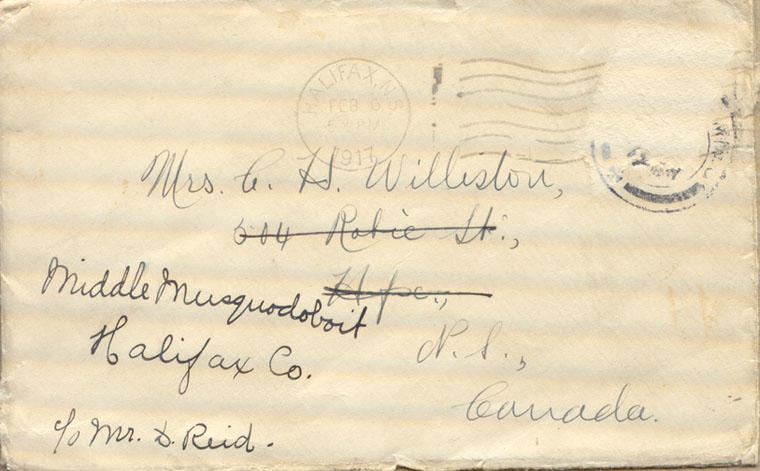 HALIFAX, N.S.
FEB 6
PM
1917
Mrs. C. H. Williston,
604 Robie St.,
Hfx.,
Middle Musquodoboit
Halifax Co.
N.S.,
Canada.
c/o Mr. D. Reid.